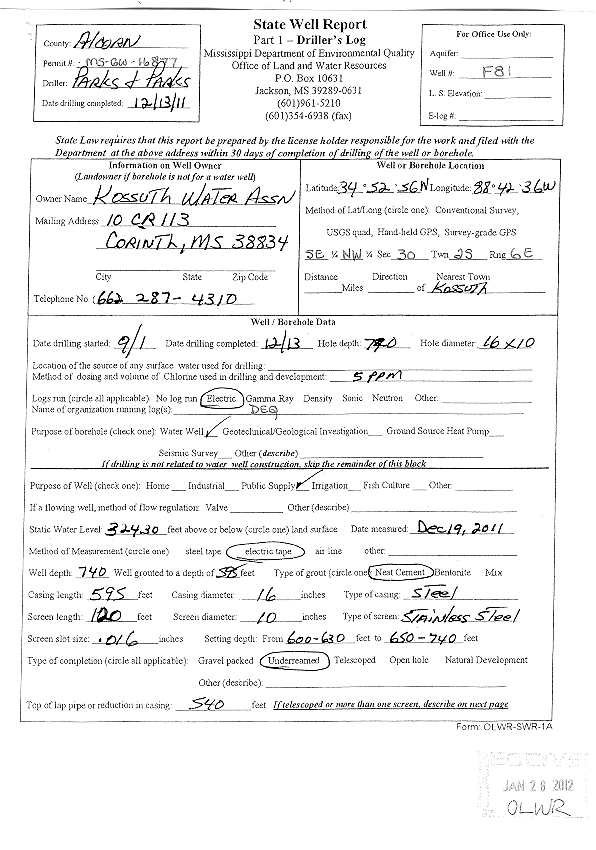 State Well Report
Part 1 – Driller's Log
Mississippi Department of Environmental Quality
Office of Land and Water Resources
P.O. Box 10631
Jackson, MS 39289-0631
(601)961-5210
(601)354-6938 (fax)
County: Alcorn
Permit #: MS-GW-16877
Driller: PARKS & PARKS
Date drilling completed: 12/13/11
For Office Use Only:
Aquifer:
Well #: F81
L. S. Elevation:
E-log #:
State Law requires that this report be prepared by the license holder responsible for the work and filed with the
Department at the above address within 30 days of completion of drilling of the well or borehole.
Information on Well Owner
(Landowner if borehole is not for a water well)
Owner Name KOSSUTH WATER ASSN
Mailing Address 10 CR 113
CORINTH, MS 38834
City State Zip Code
Telephone No. (662 287-4310
Well or Borehole Location
Latitude: 34 ° 52 ' 56 N Longitude: 88 ° 42 ' 36 W
Method of Lat/Long (circle one): Conventional Survey,
USGS quad, Hand-held GPS, Survey-grade GPS
SE ¼ NW ¼ Sec 30 Twn 2S Rng 6E
Distance Direction Nearest Town
Miles of KOSSUTH
Well / Borehole Data
Date drilling started: 9/1 Date drilling completed: 12/13 Hole depth: 740 Hole diameter: 16 X 10
Location of the source of any surface water used for drilling:
Method of dosing and volume of Chlorine used in drilling and development: 5 PPM
Logs run (circle all applicable): No log run Electric Gamma Ray Density Sonic Neutron Other:
Name of organization running log(s): DEQ
Purpose of borehole (check one): Water Well ✓ Geotechnical/Geological Investigation Ground Source Heat Pump
Seismic Survey Other (describe)
If drilling is not related to water well construction, skip the remainder of this block
Purpose of Well (check one): Home Industrial Public Supply ✓ Irrigation Fish Culture Other:
If a flowing well, method of flow regulation: Valve Other (describe)
Static Water Level: 324.30 feet above or below (circle one) land surface Date measured: Dec 19, 2011
Method of Measurement (circle one) steel tape electric tape air line other:
Well depth: 740 Well grouted to a depth of 595 feet Type of grout (circle one) Neat Cement Bentonite Mix
Casing length: 595 feet Casing diameter: 16 inches Type of casing: Steel
Screen length: 120 feet Screen diameter: 10 inches Type of screen: Stainless Steel
Screen slot size: .016 inches Setting depth: From 600-630 feet to 650-740 feet
Type of completion (circle all applicable): Gravel packed Underreamed Telescoped Open hole Natural Development
Other (describe):
Top of lap pipe or reduction in casing: 540 feet If telescoped or more than one screen, describe on next page
Form: OLWR-SWR-1A
JAN 26 2012
OLWR